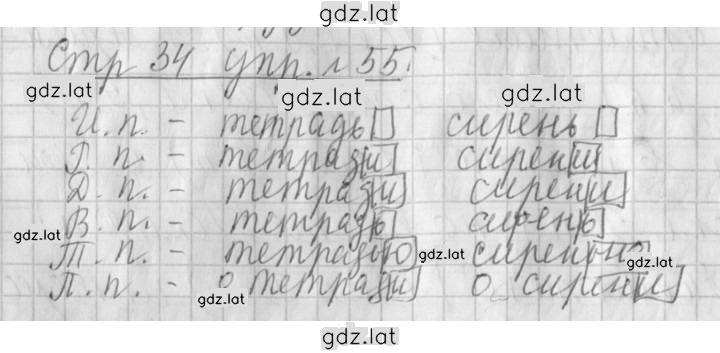 gdz.lat
Стр 34 упр. № 55.
gdz.lat gdz.lat gdz.lat
И.п. - тетрадь сирень
Р.п. - тетради сирени
Д.п. - тетради сирени
В.п. - тетрадь сирень
gdz.lat
Т.п. - тетрадью gdz.lat сиренью
gdz.lat
П.п. - о тетради о сирени
gdz.lat
gdz.lat